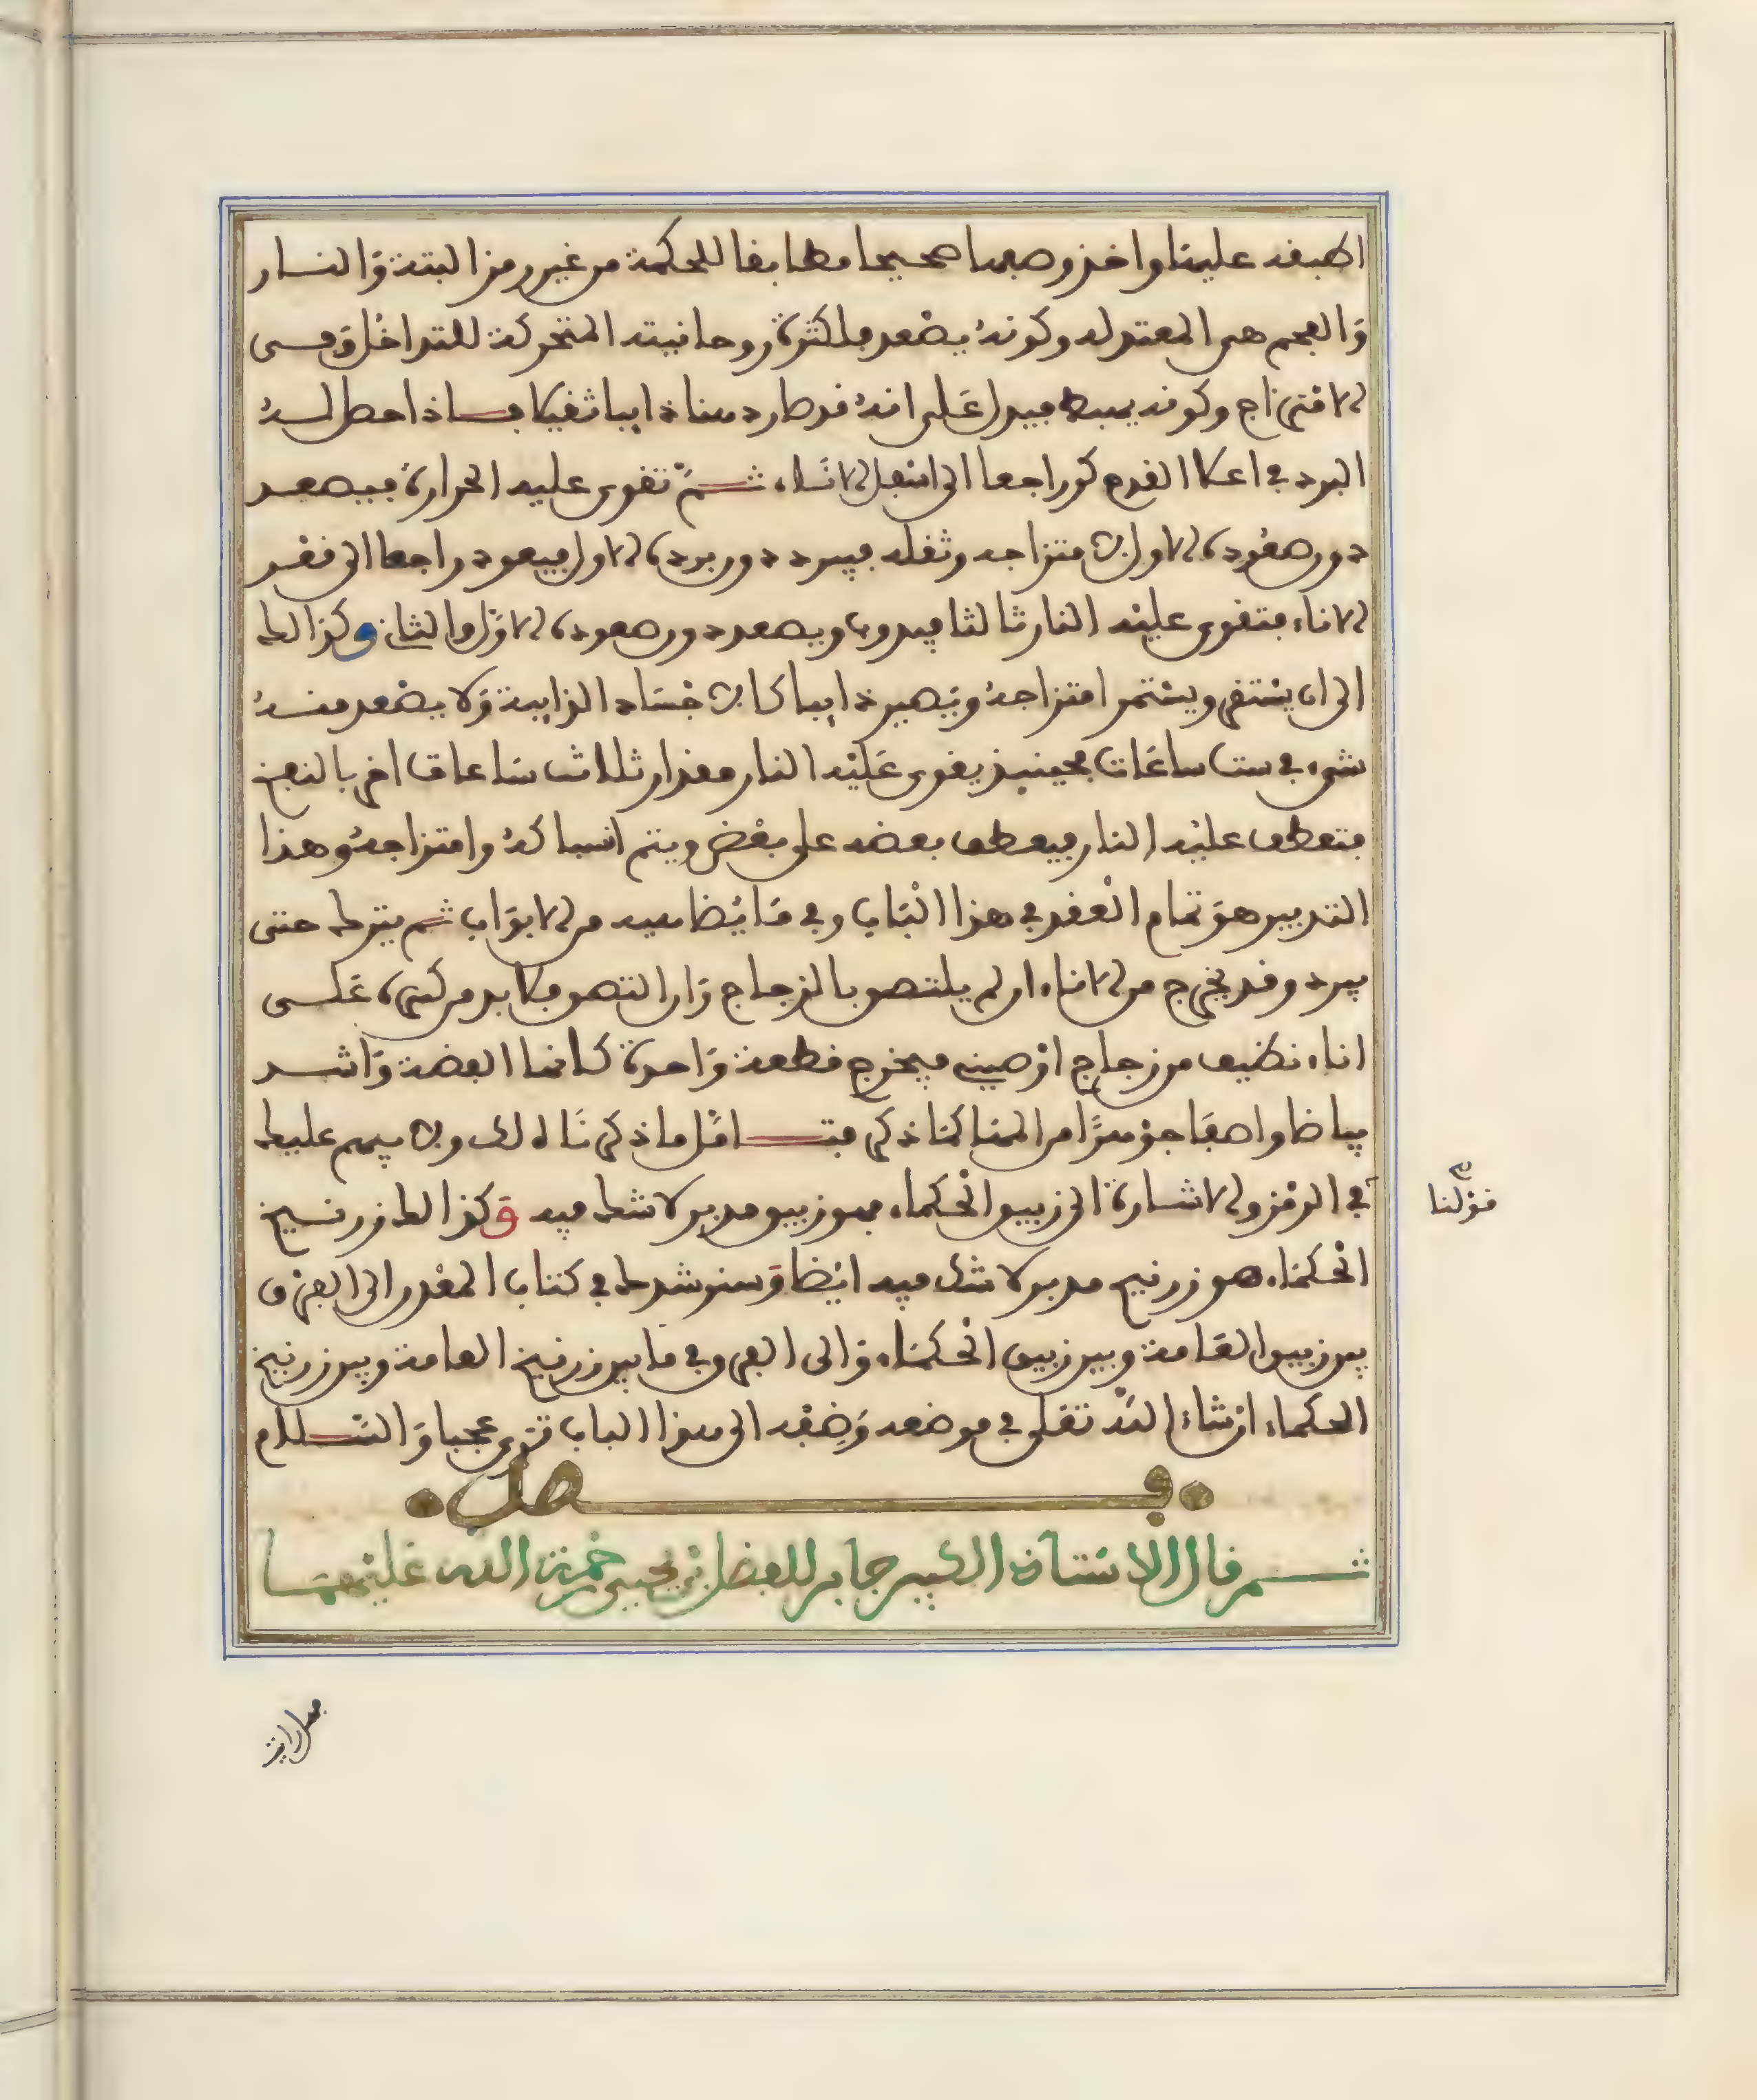 اطبقه علينا واخذ وصفا صحيحا مطابقا للحكمة من غير رمز البتة والنار
والفحم هي المعتدله وكونه يصعد فلكثرة روحانيته المتحركة للتداخل وهي
الامتزاج وكونه يهبط فيدل على انه قد صار دهنا ذايبا ثقيلا فاذا حصل له
البرد في اعلا القدح كر راجعا الى اسفل الاناء ثم تقوى عليه الحرارة فيصعد
دون صعوده الاول لامتزاجه وثقله فيبرد دون برده الاول فيعود راجعا الى قعر
الاناء فتقوى عليه النار ثالثا فيذوب ويصعد دون صعوده الاول والثاني وكذالك
الى ان يستقر ويستمر امتزاجه ويصير ذايبا كالاجساد الذايبة ولا يصعد منه
شيء في ست ساعات فحينيذ يقوى عليه النار مقدار ثلاث ساعات اخر بالنفخ
فتعطف عليه النار فيعطف بعضه على بعض ويتم انسباكه وامتزاجه وهذا
التدبير هو تمام العقد في هذا الباب وفي ما يضاهيه من الابواب ثم يترك حتى
يبرد وقد يخرج من الاناء ان لم يلتصق بالزجاج وان التصق فلا بد من كسره على
اناء نظيف من زجاج او صيني فيخرج قطعة واحدة كانها الفضة واشد
بياضا واصفا جوهرا من المها كما ذكر فتامل ما ذكرنا لك ولا يبهم عليك
في الرمز والاشارة الى زيبق الحكماء فهو زيبق مدبر لا شك فيه وكذالك زرنيخ
الحكماء هو زرنيخ مدبر لا شك فيه ايضا وسنرشدك في كتاب المقدر الى الفرق
بين زيبق العامة وبين زيبق الحكماء والى الفروق ما بين زرنيخ العامة وبين زرنيخ
الحكماء ان شاء الله تعلى في موضعه وضفه الى هذا الباب ترى عجبا والسلام
فصل
ثم قال الاستاذ الكبير جابر للفضل بن يحيى رحمة الله عليهما
قولنا